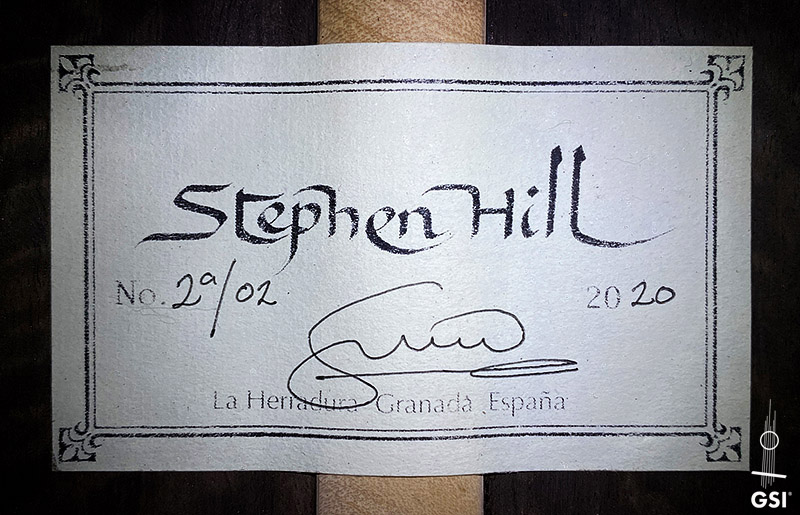 Stephen Hill
No. 2ª/02 2020
La Herradura Granada España
GSI